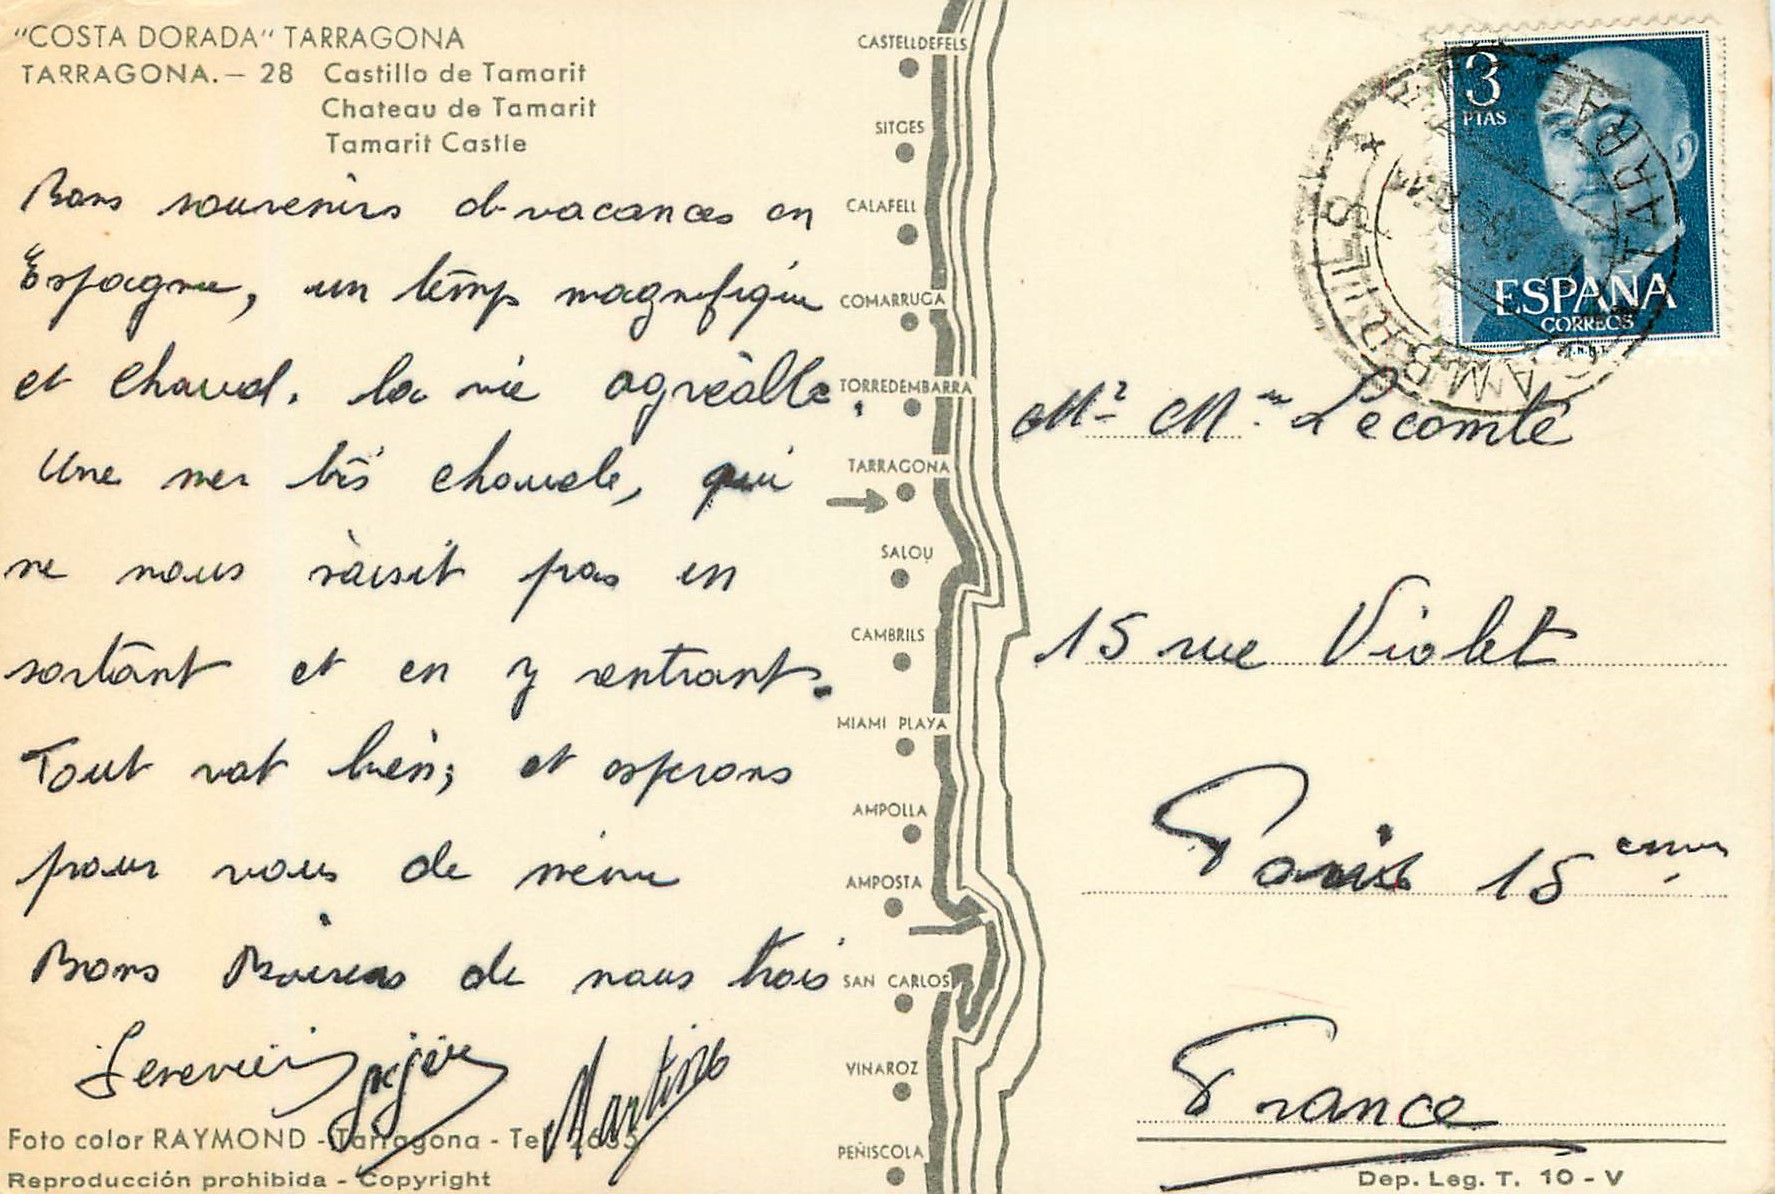 "COSTA DORADA" TARRAGONA
TARRAGONA.— 28 Castillo de Tamarit
Chateau de Tamarit
Tamarit Castle
Bons souvenirs d vacances en
Espagne, un temps magnifique
et chaud. la vie agréable.
Une mer très chaude, qui
ne nous saisit pas en
sortant et en y rentrant.
Tout vat bien; et esperons
pour vous de même
Bons Baisers de nous trois
Martine
Foto color RAYMOND - Tarragona - Tel.
Reproducción prohibida - Copyright
CASTELLDEFELS
SITGES
CALAFELL
COMARRUGA
TORREDEMBARRA
TARRAGONA
SALOU
CAMBRILS
MIAMI PLAYA
AMPOLLA
AMPOSTA
SAN CARLOS
VINAROZ
PEÑISCOLA
3
PTAS
ESPAÑA
CORREOS
CAMBRILS
Mr Mme Lecomte
15 rue Violet
Paris 15 eme
France
Dep. Leg. T. 10 - V